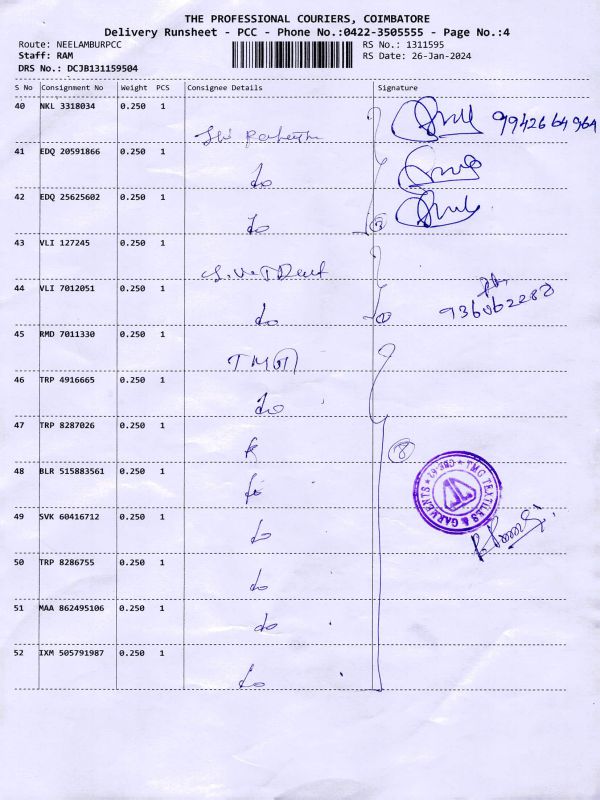 THE PROFESSIONAL COURIERS, COIMBATORE
Delivery Runsheet - PCC - Phone No.:0422-3505555 - Page No.:4
Route: NEELAMBURPCC RS No.: 1311595
Staff: RAM RS Date: 26-Jan-2024
DRS No.: DCJB131159504
S No Consignment No Weight PCS Consignee Details Signature
40 NKL 3318034 0.250 1
9942664964
41 EDQ 20591866 0.250 1
do
42 EDQ 25625602 0.250 1
do 3
43 VLI 127245 0.250 1
44 VLI 7012051 0.250 1
do 2
45 RMD 7011330 0.250 1
TMG
46 TRP 4916665 0.250 1
do
47 TRP 8287026 0.250 1
8
48 BLR 515883561 0.250 1
TMG TEXTILES & GARMENTS
CBE-62
49 SVK 60416712 0.250 1
do
50 TRP 8286755 0.250 1
do
51 MAA 862495106 0.250 1
do
52 IXM 505791987 0.250 1
do